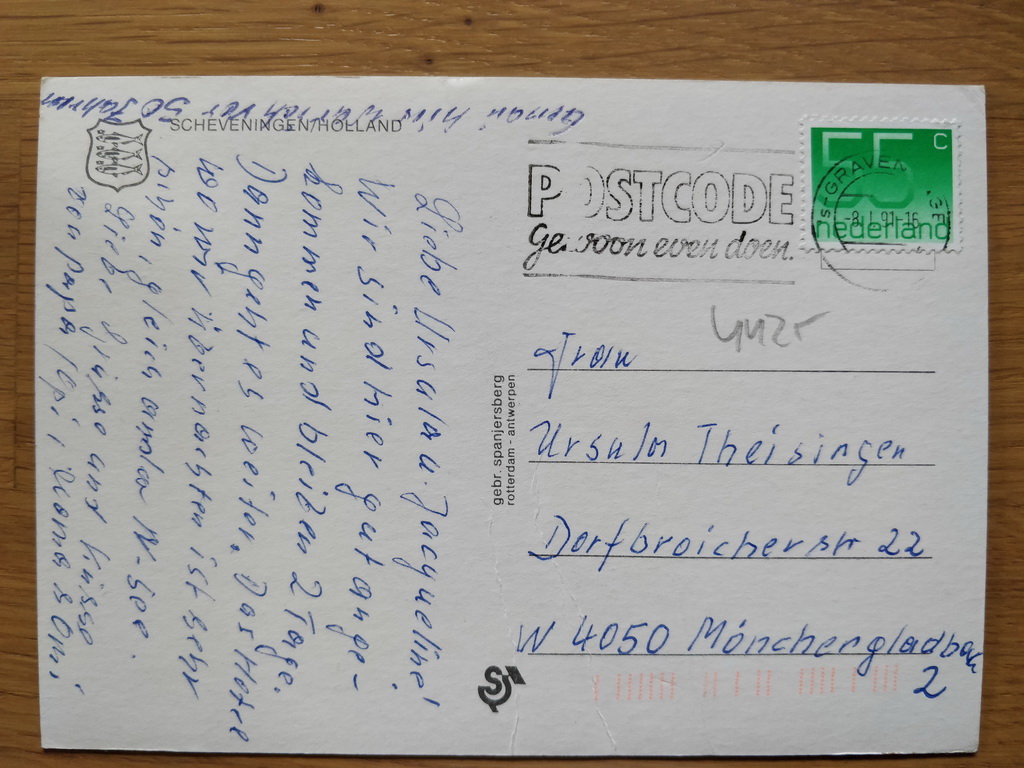 Genau hier war ich vor 50 Jahren
SCHEVENINGEN/HOLLAND
Liebe Ursula u. Jacqueline!
Wir sind hier gut ange-
kommen und bleiben 2 Tage.
Dann geht es weiter. Das Hotel
wo wir übernachten ist sehr
schön, gleich an der N-See.
Liebe Grüsse und Küsse
von Papa
gebr. spanjersberg
rotterdam - antwerpen
POSTCODE
Gewoon even doen.
's-GRAVEN
-8.1.91-16
55 c
nederland
4425
Frau
Ursula Theisingen
Dorfbroicherstr 22
W 4050 Mönchengladbach
2